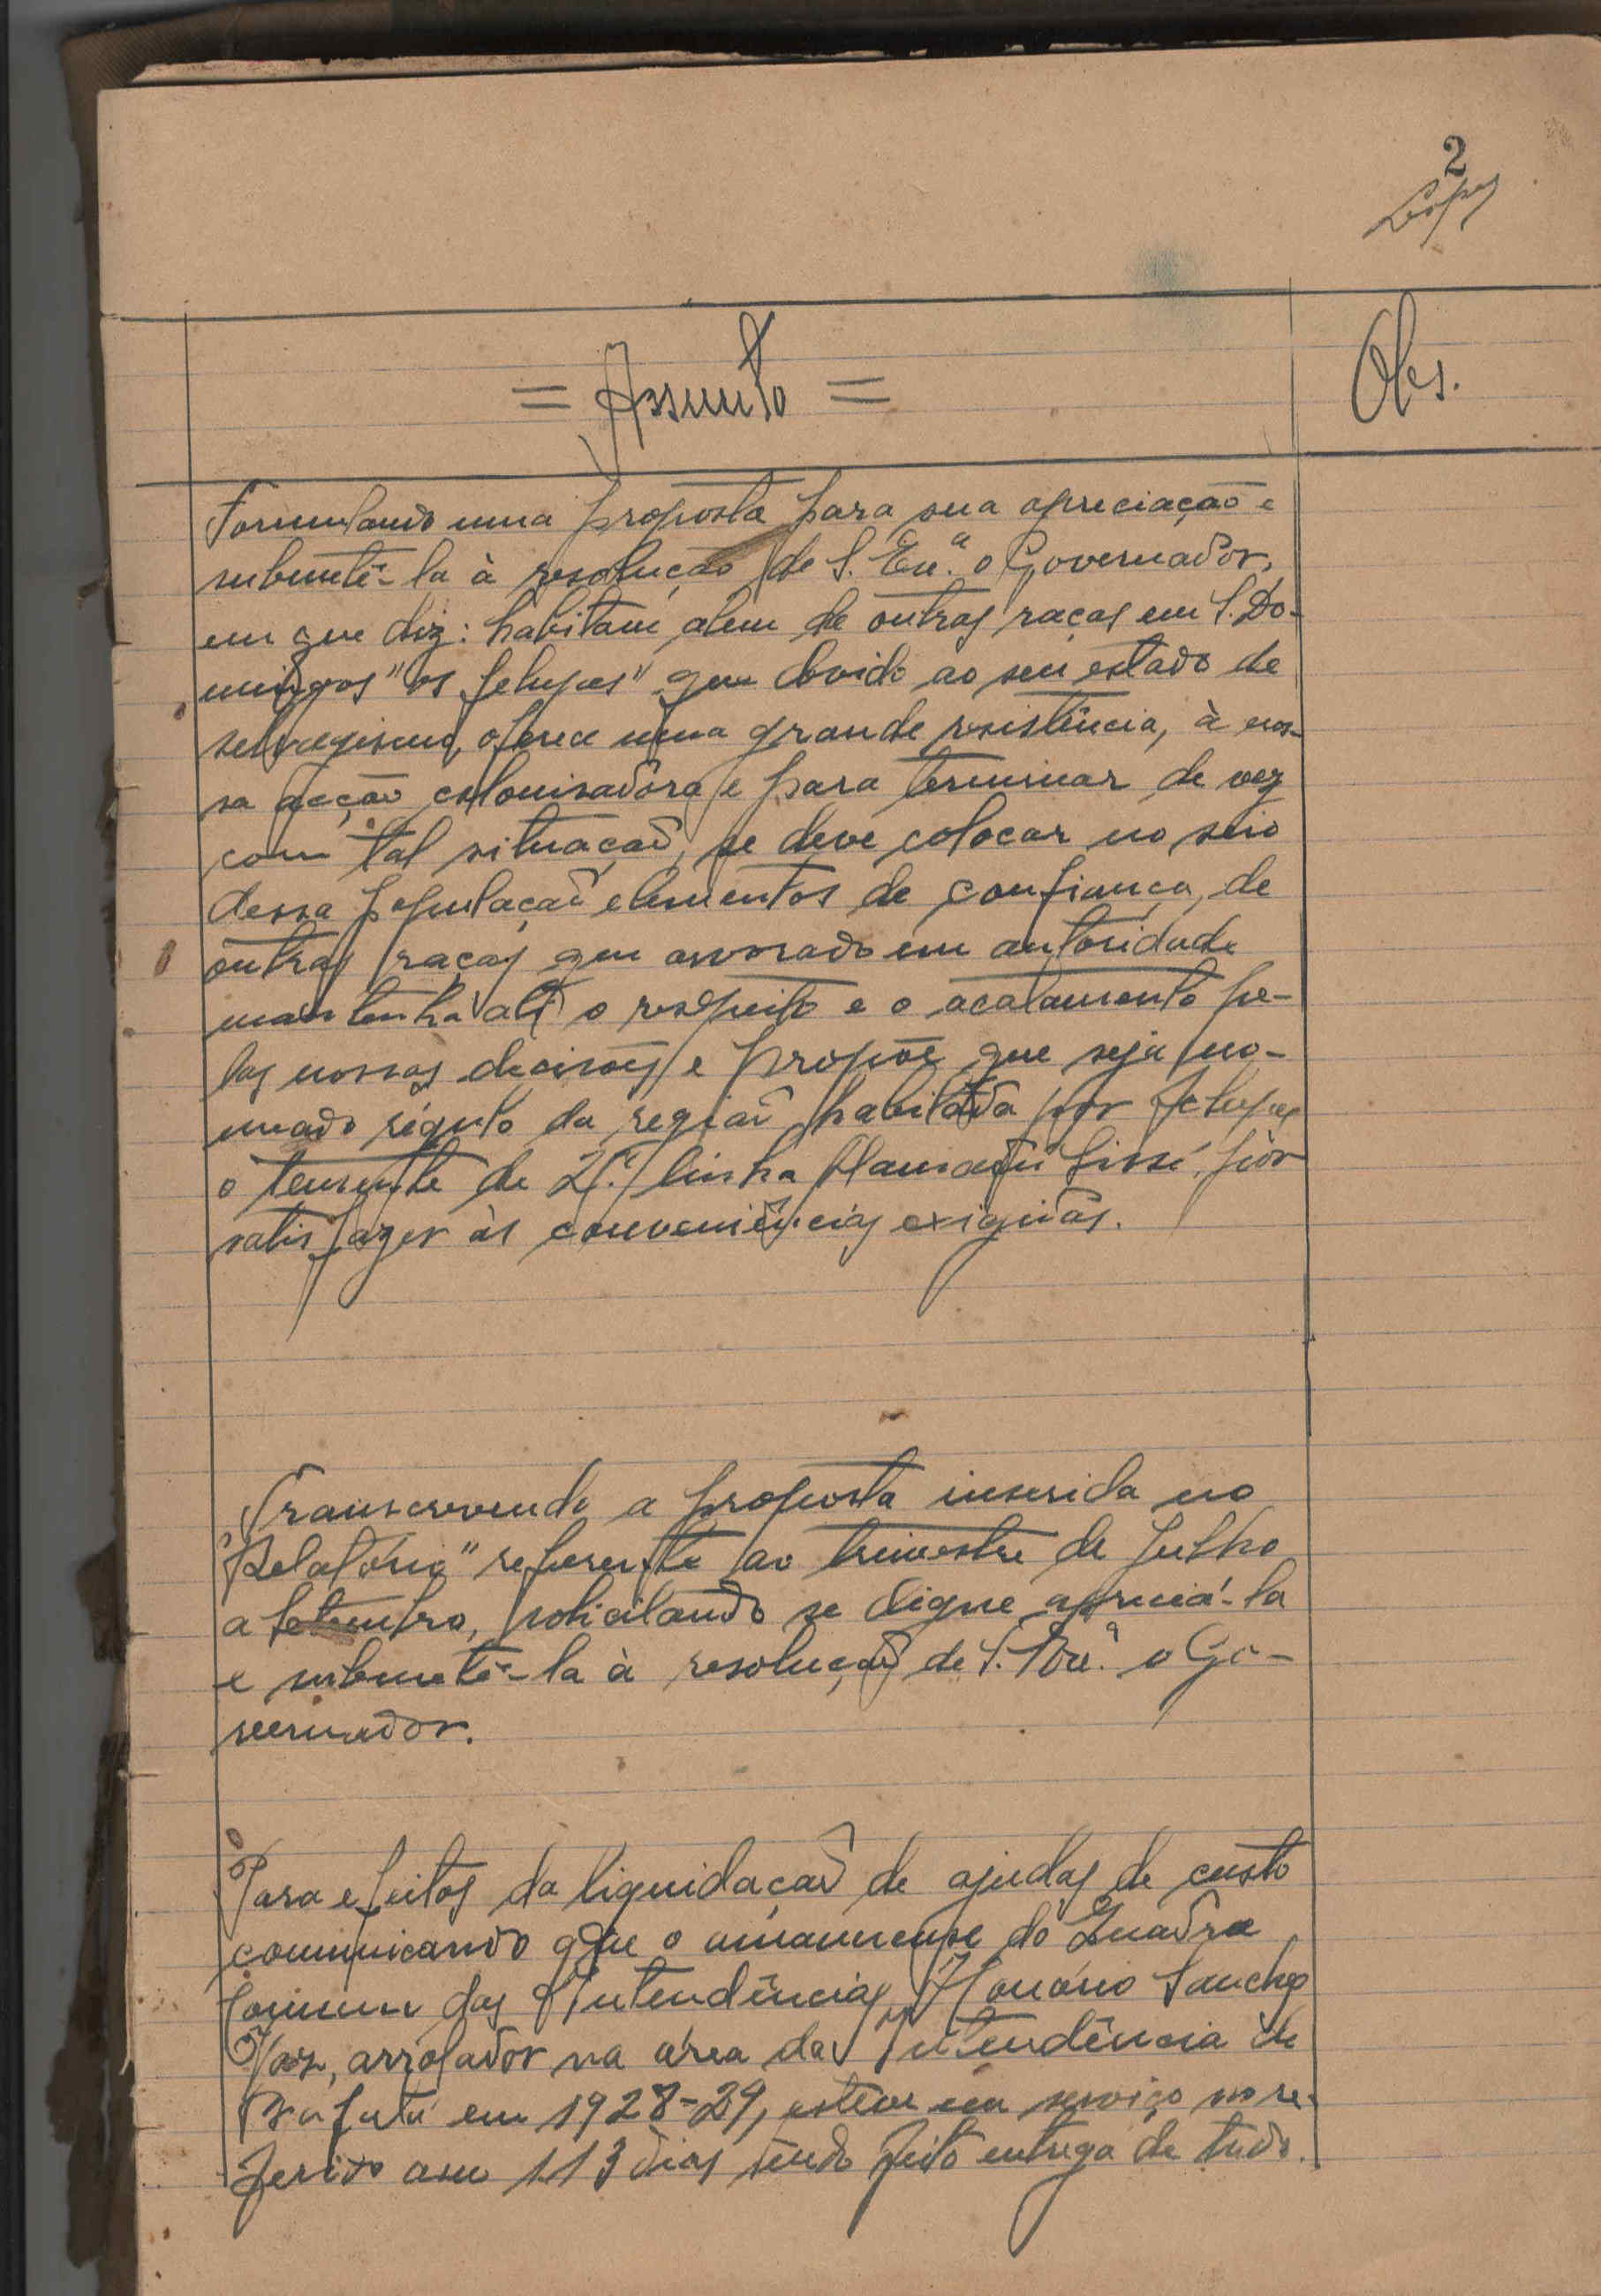 2
Lopes
= Assunto =
Obs.
Formulando uma proposta para sua apreciação e
submetê-la à resolução de S. Exª. o Governador,
em que diz: habitam alem de outras raças em S. Do-
mingos "os felupes" que devido ao seu estado de
selvagismo, oferece uma grande resistência, à nos-
sa acção colonisadora e para terminar de vez
com tal situação, se deve colocar no seio
dessa população elementos de confiança, de
outras raças que arvorado em autoridade
mantenha ali o respeito e o acatamento pe-
las nossas decisões e propõe que seja no-
meado régulo da região habitada por Felupes
o tenente de 2ª. linha Mamadú Sissé, por
satisfazer às conveniências exigidas.
Transcrevendo a proposta inserida no
"Relatório" referente ao trimestre de Julho
a Setembro, solicitando se digne apreciá-la
e submetê-la à resolução de S. Exª. o Go-
vernador.
Para efeitos da liquidação de ajudas de custo
comunicando que o amanuense do Quadro
Comum das Intendências, Honório Sanches
Vaz, arrolador na área da Intendência de
Bafatá em 1928-29, esteve em serviço no re-
ferido ano 113 dias tendo feito entrega de tudo.